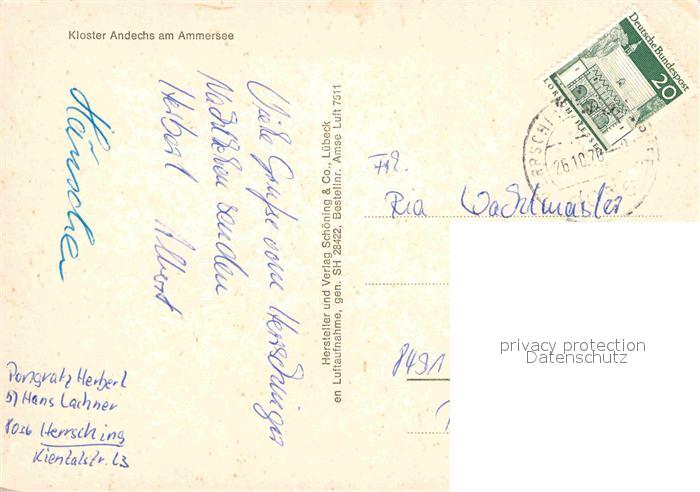 Kloster Andechs am Ammersee
Deutsche Bundespost
20
LORSCH/HESSEN
26.10.70
Viele Grüße vom Herrschinger
Nachtleben senden
Herbert Albert
Hännschen
Hersteller und Verlag Schöning & Co., Lübeck
en Luftaufnahme, gen. SH 28422, Bestellnr. Amse Luft 7511
Frl.
Ria Wachtmeister
8491
privacy protection
Datenschutz
Pongratz Herbert
b/ Hans Lachner
8036 Herrsching
Kientalstr. 23